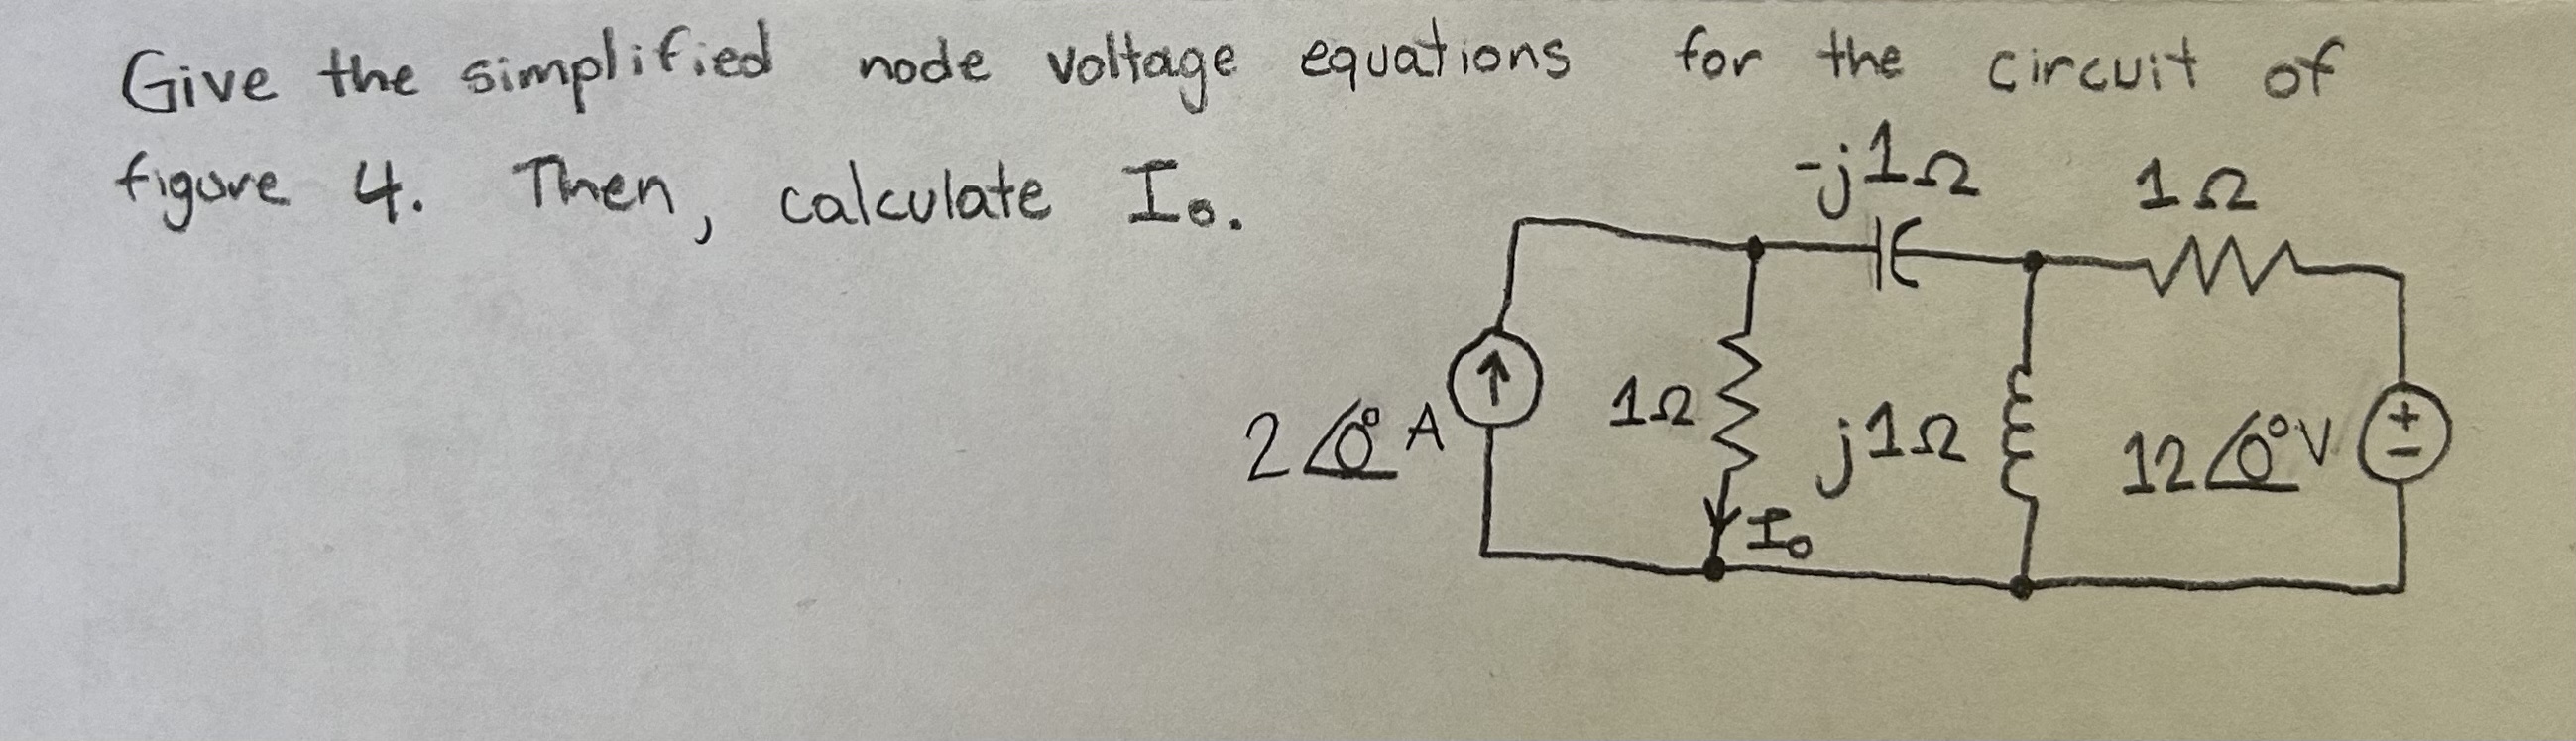 Give the simplified node voltage equations for the circuit of
figure 4. Then, calculate I₀.
-j1Ω
1Ω
2∠0° A
1Ω
j1Ω
12∠0° V
+
−
I₀